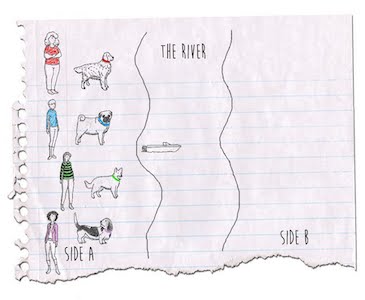 THE RIVER
SIDE A
SIDE B